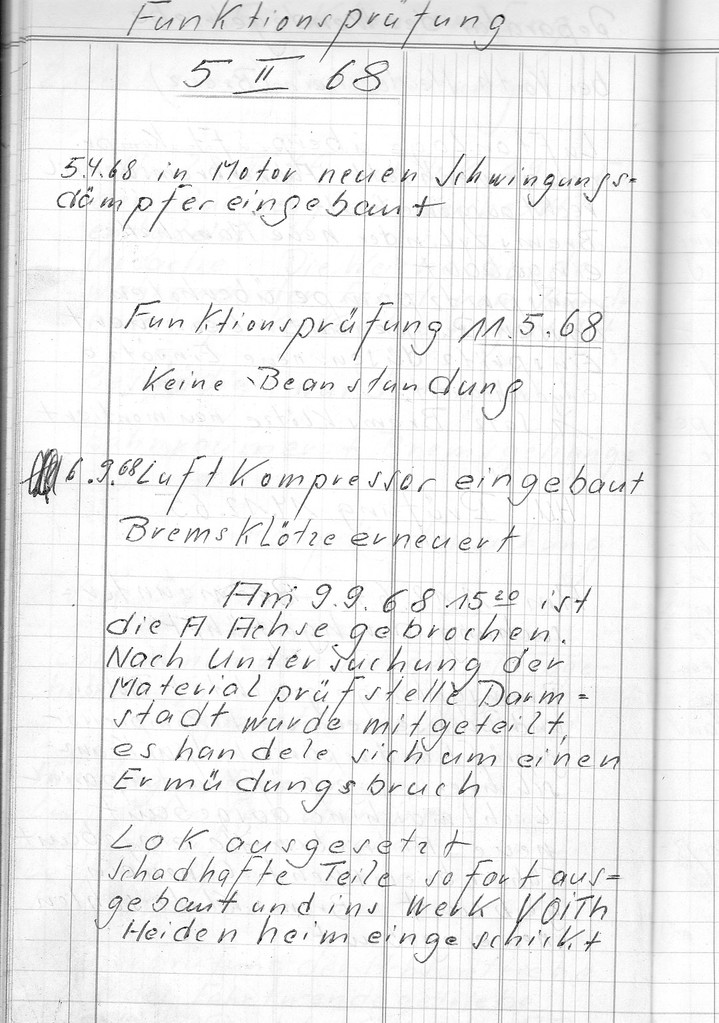 Funktionsprüfung
5 II 68
5.4.68 in Motor neuen Schwingungs=
dämpfer eingebaut
Funktionsprüfung 11.5.68
Keine Beanstandung
6.9.68 Luft Kompressor eingebaut
Bremsklötze erneuert
Am 9.9.68 15 20 ist
die A Achse gebrochen.
Nach Untersuchung der
Materialprüfstelle Darm=
stadt wurde mitgeteilt,
es handele sich um einen
Ermüdungsbruch
Lok ausgesetzt
Schadhafte Teile sofort aus=
gebaut und ins Werk VOITH
Heidenheim eingeschickt